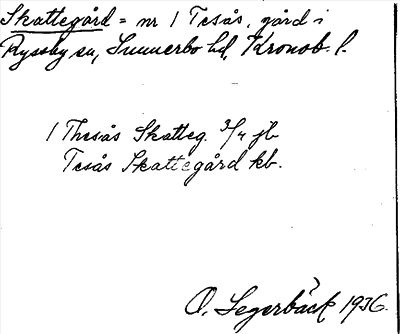 Skattegård = nr 1 Tesås, gård i
Ryssby sn, Sunnerbo hd, Kronob. l.
1 Thesås Skatteg. 3/4 jb
Tesås Skattegård kb.
O. Segerbäck 1936.